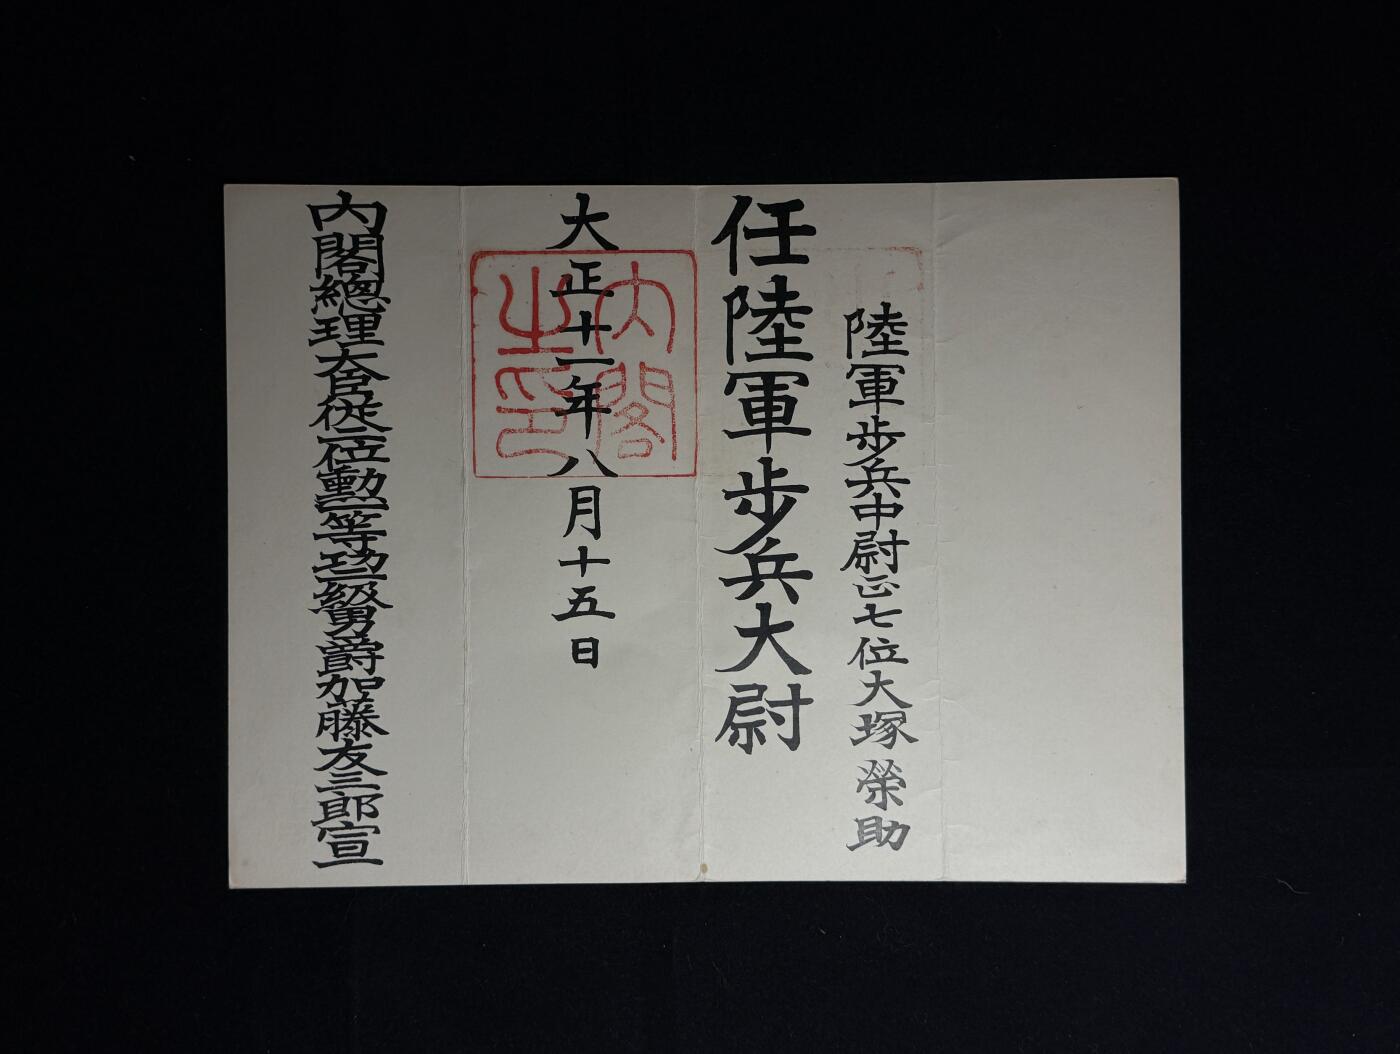 陸軍歩兵中尉正七位大塚榮助
任陸軍歩兵大尉
大正十一年八月十五日
內閣總理大臣從二位勳一等功二級男爵加藤友三郎宣
內閣之印